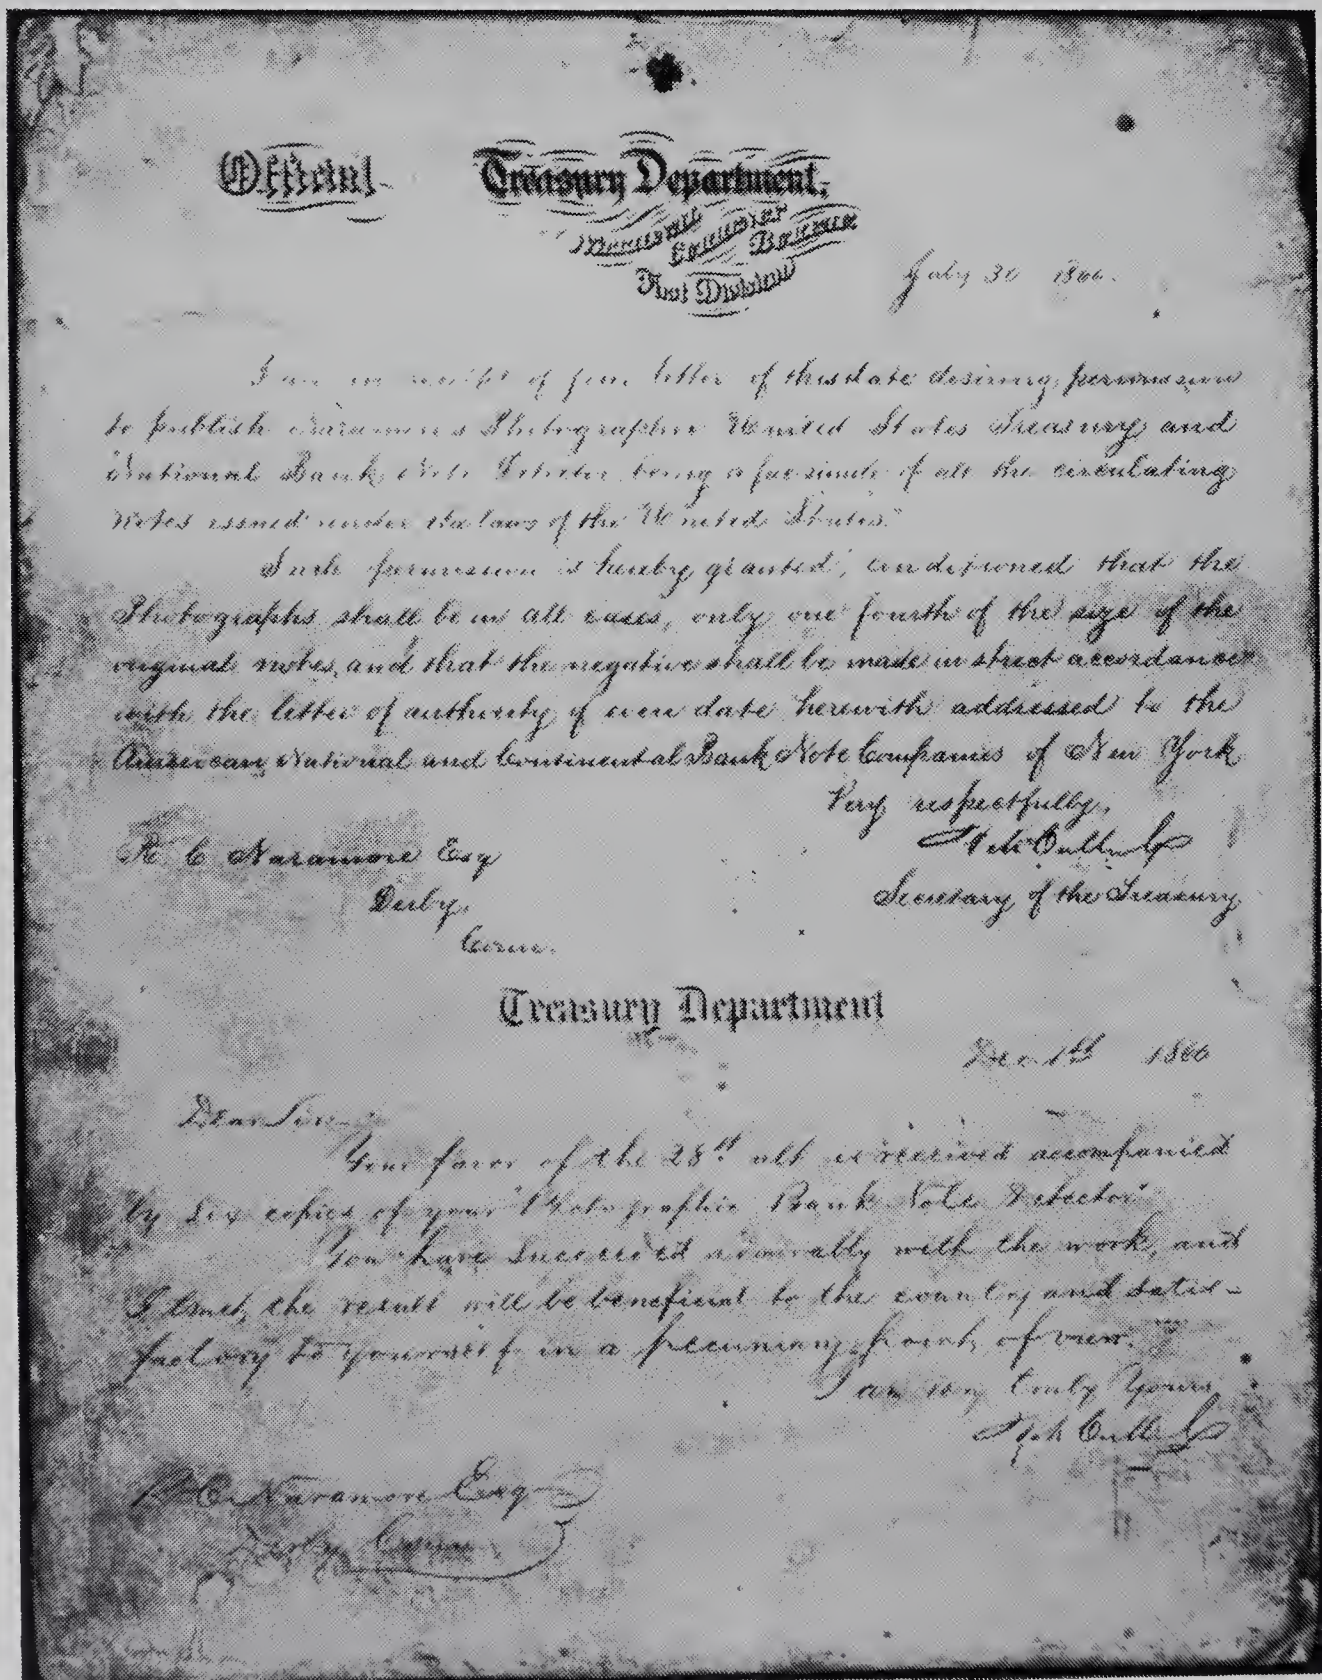 Official
Treasury Department,
National Currency Bureau
First Division
July 30 1866.
I am in receipt of your letter of this date desiring permission
to publish Naramore's Photographic United States Treasury and
National Bank Note Detector being a facsimile of all the circulating
Notes issued under the laws of the United States."
Such permission is hereby granted, conditioned that the
Photographs shall be in all cases, only one fourth of the size of the
original notes, and that the negative shall be made in strict accordance
with the letter of authority of even date herewith addressed to the
American, National and Continental Bank Note Companies of New York
Very respectfully,
Secretary of the Treasury
R C Naramore Esq
Derby,
Conn.
Treasury Department
Dec 1st 1866
Dear Sir
Your favor of the 28th ult is received accompanied
by six copies of your "Photographic Bank Note Detector"
You have succeeded admirably with the work, and
I trust, the result will be beneficial to the country and satis-
factory to yourself in a pecuniary point of view.
I am very truly Yours
R C Naramore Esq
Derby Conn